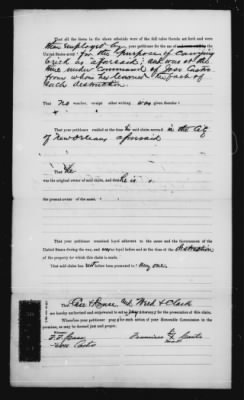 That all the items in the above schedule were of the full value therein set forth and were
then employed by your petitioner for the use of
United States for the purpose of carrying
brick as aforesaid; and was at the
time under command of Jose Castro
from whom he learned the fact of
such destruction.
That no voucher, receipt or other writing was given therefor:
That your petitioner resided at the time the said claim accrued in the City
of New Orleans aforesaid
That he
was the original owner of said claim, and he is
the present owner of the same.
That your petitioner remained loyal adherent to the cause and the Government of the
United States during the war, and was so loyal before and at the time of the destruction
of the property for which this claim is made.
That said claim has not before been presented to any one.
That
are hereby authorized and empowered to act as attorney for the prosecution of this claim.
Wherefore your petitioner prays for such action of your Honorable Commission in the
premises, as may be deemed just and proper.
Jose Castro
mark